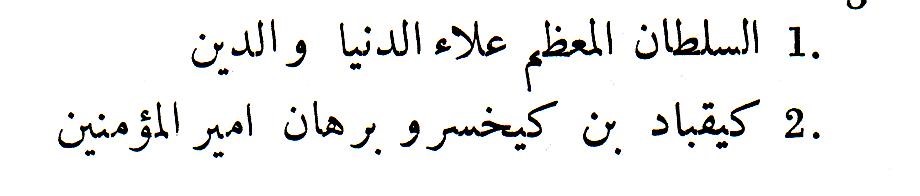 1. السلطان المعظم علاء الدنيا و الدين
2. كيقباد بن كيخسرو برهان امير المؤمنين